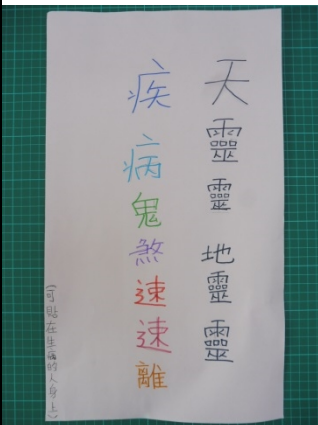 天靈靈 地靈靈
疾病鬼煞速速離
(可貼在生病的人身上)